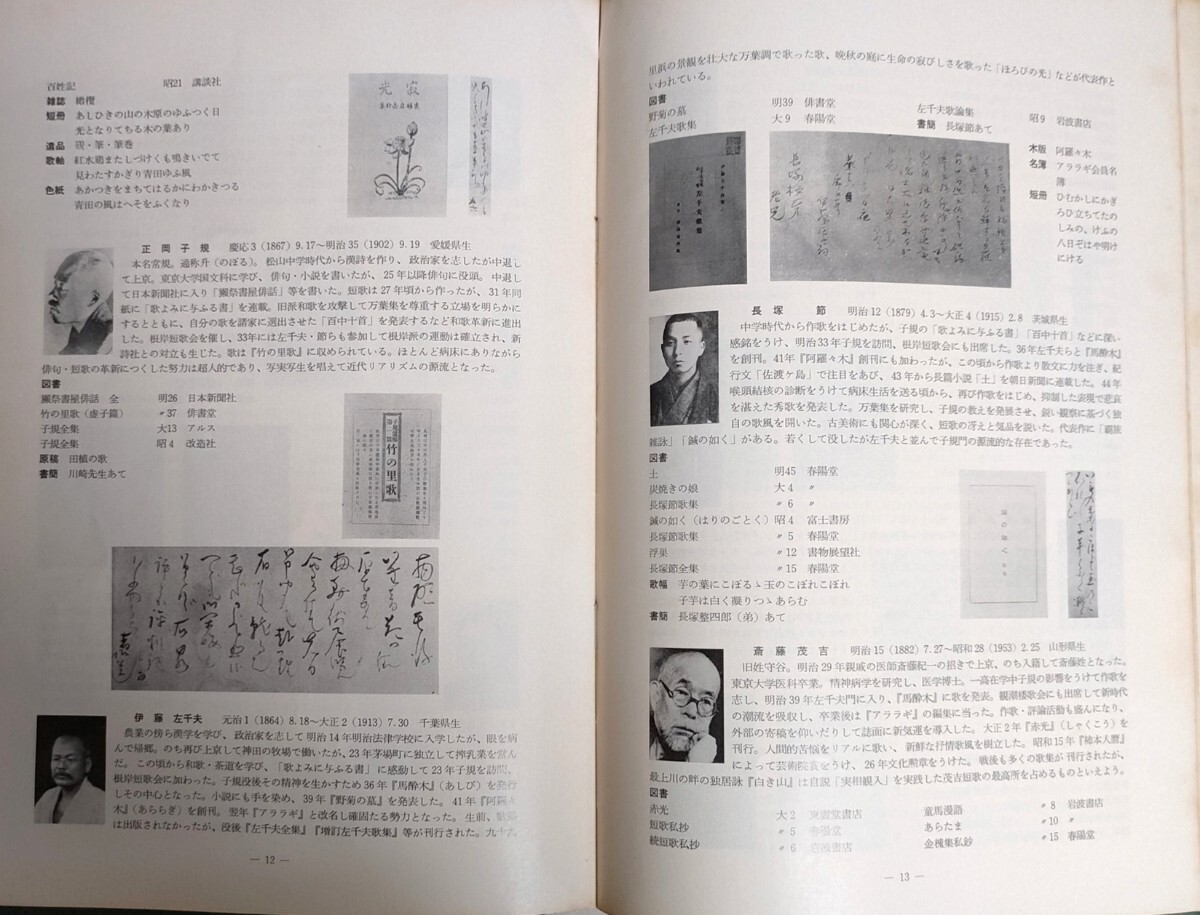 百姓記 昭21 講談社
雑誌 橄欖
短冊 あしひきの山の木原のゆふつく日
光となりてちる木の葉あり
遺品 硯・筆・筆巻
歌軸 紅水鶏またしづけくも鳴きいでて
見わたすかぎり青田ゆふ風
色紙 あかつきをまちてはるかにわかきつる
青田の風はへそをふくなり
寂光
正岡子規 慶応3(1867)9.17〜明治35(1902)9.19 愛媛県生
本名常規。通称升(のぼる)。松山中学時代から漢詩を作り、政治家を志したが中退し
て上京。東京大学国文科に学び、俳句・小説を書いたが、25年以降俳句に没頭。中退し
て日本新聞社に入り「獺祭書屋俳話」等を書いた。短歌は27年頃から作ったが、31年同
紙に「歌よみに与ふる書」を連載。旧派和歌を攻撃して万葉集を尊重する立場を明らかに
するとともに、自分の歌を諸家に選出させた「百中十首」を発表するなど和歌革新に進出
した。根岸短歌会を催し、33年には左千夫・節らも参加して根岸派の運動は確立され、新
詩社との対立も生じた。歌は『竹の里歌』に収められている。ほとんど病床にありながら
俳句・短歌の革新につくした努力は超人的であり、写実写生を唱えて近代リアリズムの源流となった。
図書
獺祭書屋俳話 全 明26 日本新聞社
竹の里歌(虚子篇) 〃37 俳書堂
子規全集 大13 アルス
子規全集 昭4 改造社
原稿 田植の歌
書簡 川崎先生あて
竹の里歌
伊藤左千夫 元治1(1864)8.18〜大正2(1913)7.30 千葉県生
農業の傍ら漢学を学び、政治家を志して明治14年明治法律学校に入学したが、眼を病
んで帰郷。のち再び上京して神田の牧場で働いたが、23年茅場町に独立して搾乳業を営ん
だ。この頃から和歌・茶道を学び、「歌よみに与ふる書」に感動して23年子規を訪問、
根岸短歌会に加わった。子規没後その精神を生かすため36年『馬酔木』(あしび)を発行
しその中心となった。小説にも手を染め、39年『野菊の墓』を発表した。41年『阿羅々
木』(あららぎ)を創刊。翌年『アララギ』と改名し確固たる勢力となった。生前、歌集
は出版されなかったが、没後『左千夫全集』『増訂左千夫歌集』等が刊行された。九十九
— 12 —
里浜の景観を壮大な万葉調で歌った歌、晩秋の庭に生命の寂びしさを歌った「ほろびの光」などが代表作と
いわれている。
図書
野菊の墓 明39 俳書堂 左千夫歌論集 昭9 岩波書店
左千夫歌集 大9 春陽堂 書簡 長塚節あて
左千夫歌集
木版 阿羅々木
名簿 アララギ会員名
簿
短冊 ひむかしにかぎ
ろひ立ちてたの
しみの、けふの
八日ぞはや明け
にける
長塚節 明治12(1879)4.3〜大正4(1915)2.8 茨城県生
中学時代から作歌をはじめたが、子規の「歌よみに与ふる書」「百中十首」などに深い
感銘をうけ、明治33年子規を訪問、根岸短歌会にも出席した。36年左千夫らと『馬酔木』
を創刊。41年『阿羅々木』創刊にも加わったが、この頃から作歌より散文に力を注ぎ、紀
行文「佐渡ヶ島」で注目をあび、43年から長篇小説「土」を朝日新聞に連載した。44年
喉頭結核の診断をうけて病床生活を送る頃から、再び作歌をはじめ、抑制した表現で悲哀
を湛えた秀歌を発表した。万葉集を研究し、子規の教えを発展させ、鋭い観察に基づく独
自の歌風を開いた。古美術にも関心が深く、短歌の冴えと気品を説いた。代表作に「羇旅
雑詠」「鍼の如く」がある。若くして没したが左千夫と並んで子規門の源流的な存在であった。
図書
土 明45 春陽堂
炭焼きの娘 大4 〃
長塚節歌集 〃6 〃
鍼の如く(はりのごとく)昭4 富士書房
長塚節歌集 〃5 春陽堂
浮巣 〃12 書物展望社
長塚節全集 〃15 春陽堂
歌幅 芋の葉にこぼるゝ玉のこぼれこぼれ
子芋は白く凝りつゝあらむ
書簡 長塚整四郎(弟)あて
斎藤茂吉 明治15(1882)7.27〜昭和28(1953)2.25 山形県生
旧姓守谷。明治29年親戚の医師斎藤紀一の招きで上京、のち入籍して斎藤姓となった。
東京大学医科卒業。精神病学を研究し、医学博士。一高在学中子規の影響をうけて作歌を
志し、明治39年左千夫門に入り、『馬酔木』に歌を発表。観潮楼歌会にも出席して新時代
の潮流を吸収し、卒業後は『アララギ』の編集に当った。作歌・評論活動も盛んになり、
外部の寄稿を仰いだりして誌面に新気運を導入した。大正2年『赤光』(しゃくこう)を
刊行。人間的苦悩をリアルに歌い、新鮮な抒情歌風を樹立した。昭和15年『柿本人麿』
によって芸術院賞をうけ、26年文化勲章をうけた。戦後も多くの歌集が刊行されたが、
最上川の畔の独居詠『白き山』は自説「実相観入」を実践した茂吉短歌の最高所を占めるものといえよう。
図書
赤光 大2 東雲堂書店 童馬漫語 〃8 岩波書店
短歌私抄 〃5 春陽堂 あらたま 〃10 〃
続短歌私抄 〃6 岩波書店 金槐集私鈔 〃15 春陽堂
— 13 —